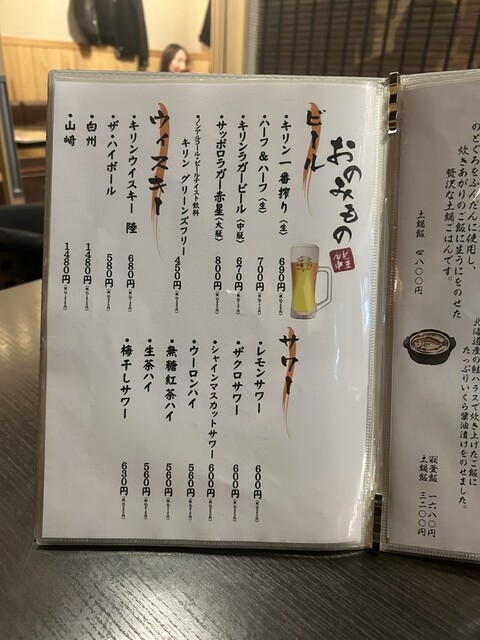 おのみもの
ビール
・キリン一番搾り(生) 690円
・ハーフ&ハーフ(生) 700円
・キリンラガービール(中瓶) 670円
・サッポロラガー赤星(大瓶) 800円
・ノンアルコール・ビールテイスト飲料
キリン グリーンズフリー 450円
ウイスキー
・キリンウイスキー 陸 680円
・ザ・ハイボール 580円
・白州 1480円
・山崎 1480円
サワー
・レモンサワー 600円
・ザクロサワー 600円
・シャインマスカットサワー 600円
・ウーロンハイ 560円
・無糖紅茶ハイ 560円
・生茶ハイ 560円
・梅干しサワー 630円
北海道産の鮭ハラスで炊き上げたご飯に
たっぷりいくら醤油漬けをのせました。
羽釜飯 一六八〇円
土鍋飯 三二〇〇円
のどぐろをふんだんに使用し、
炊きあがりのご飯に生うにをのせた
贅沢な土鍋ごはんです。
土鍋飯 四八〇〇円